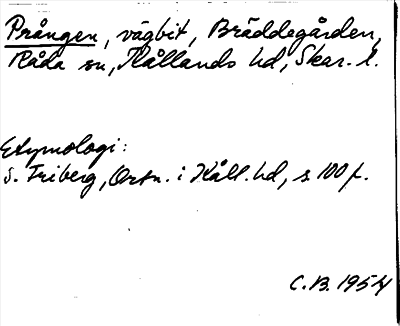 Prången, vägbit, Bräddegården,
Råda sn, Kållands hd, Skar. l.
Etymologi:
S. Friberg, Ortn. i Kåll. hd, s 100 f.
C.B. 1954